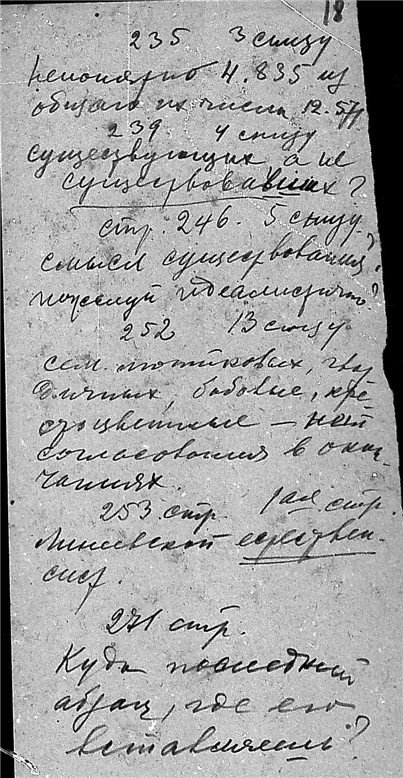 18
235 3 снизу
непонятно 4.835 из
общего их числа 12.571
239 4 снизу
существующих а не
существовавших?
стр. 246. 5 снизу
смысл существования?
пожалуй идеалистично?
252 13 снизу
сем. лютиковых, гвоз
дичных, бобовые, кре
стоцветные — нет
согласования в окон-
чаниях.
253 стр. 1ая стр.
Линеевской естествен.
сист.
271 стр.
Куда последний
абзац, где его
вставляешь?